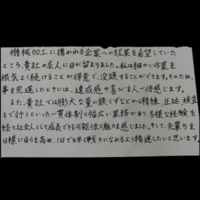 機械加工に携われる企業への就業を希望していた
ところ、貴社の求人に目が留まりました。私は細かい作業を
根気よく続けることが得意で、没頭することができます。そのため、
事を完遂したときには、達成感や喜びも人一倍感じます。
また、貴社では膨大な量の鉄くずなどから精錬、圧延、検査
まで行うといった一貫体制と幅広い業務があり、多様な経験を
経て社会人として成長できる可能性に魅力を感じました。そして、先輩方を
目標に自らを高め、1日でも早く戦力になれるよう精進したいと思います。